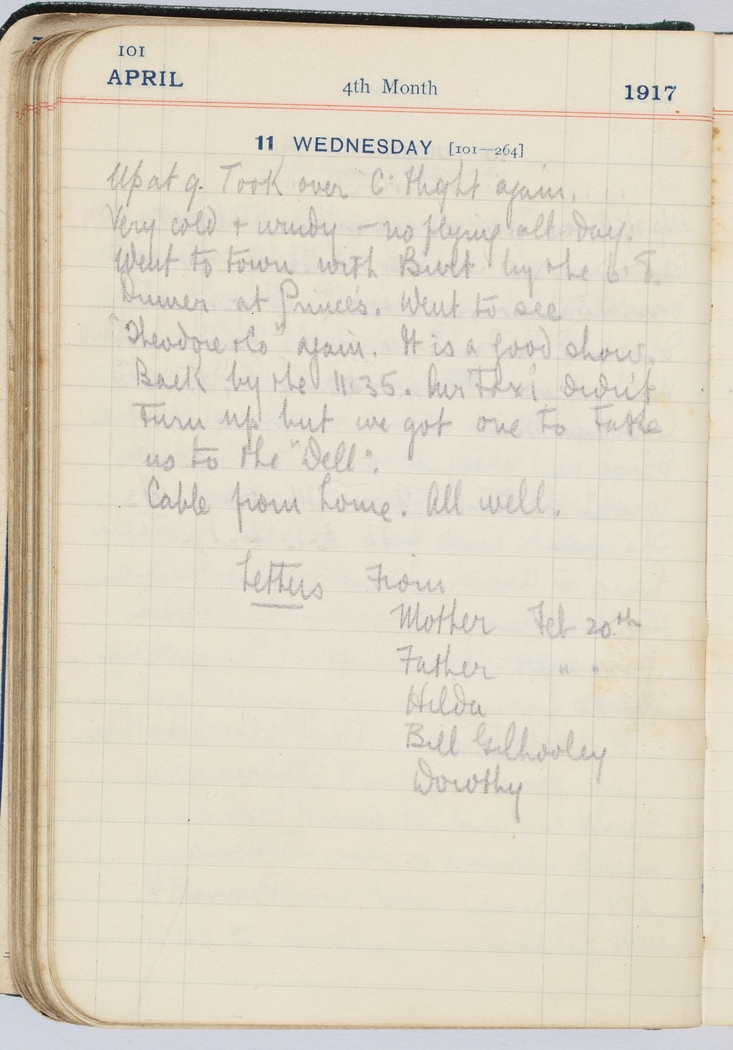 101
APRIL 4th Month 1917
11 WEDNESDAY [101—264]
Up at 9. Took over "C" Flight again.
Very cold + windy – no flying all day.
Went to town with Burt by the 6.
Dinner at Prince's. Went to see
"Theodore & Co" again. It is a good show.
Back by the 11.35. Our Taxi didn't
turn up but we got one to take
us to the "Dell".
Cable from home. All well.
Letters From
Mother Feb 20th
Father " "
Hilda
Bill Gilhooley
Dorothy